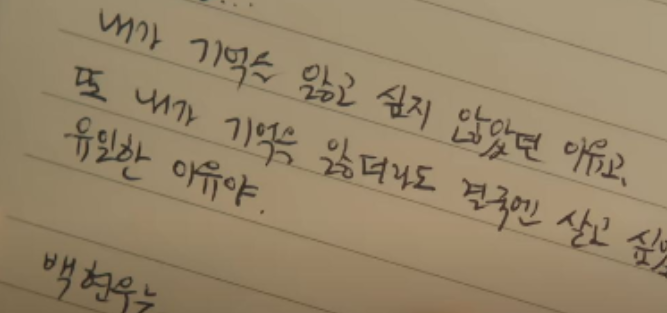 내가 기억을 잃고 싶지 않았던 이유고,
또 내가 기억을 잃더라도 결국엔 살고
유일한 이유야.
백현우는